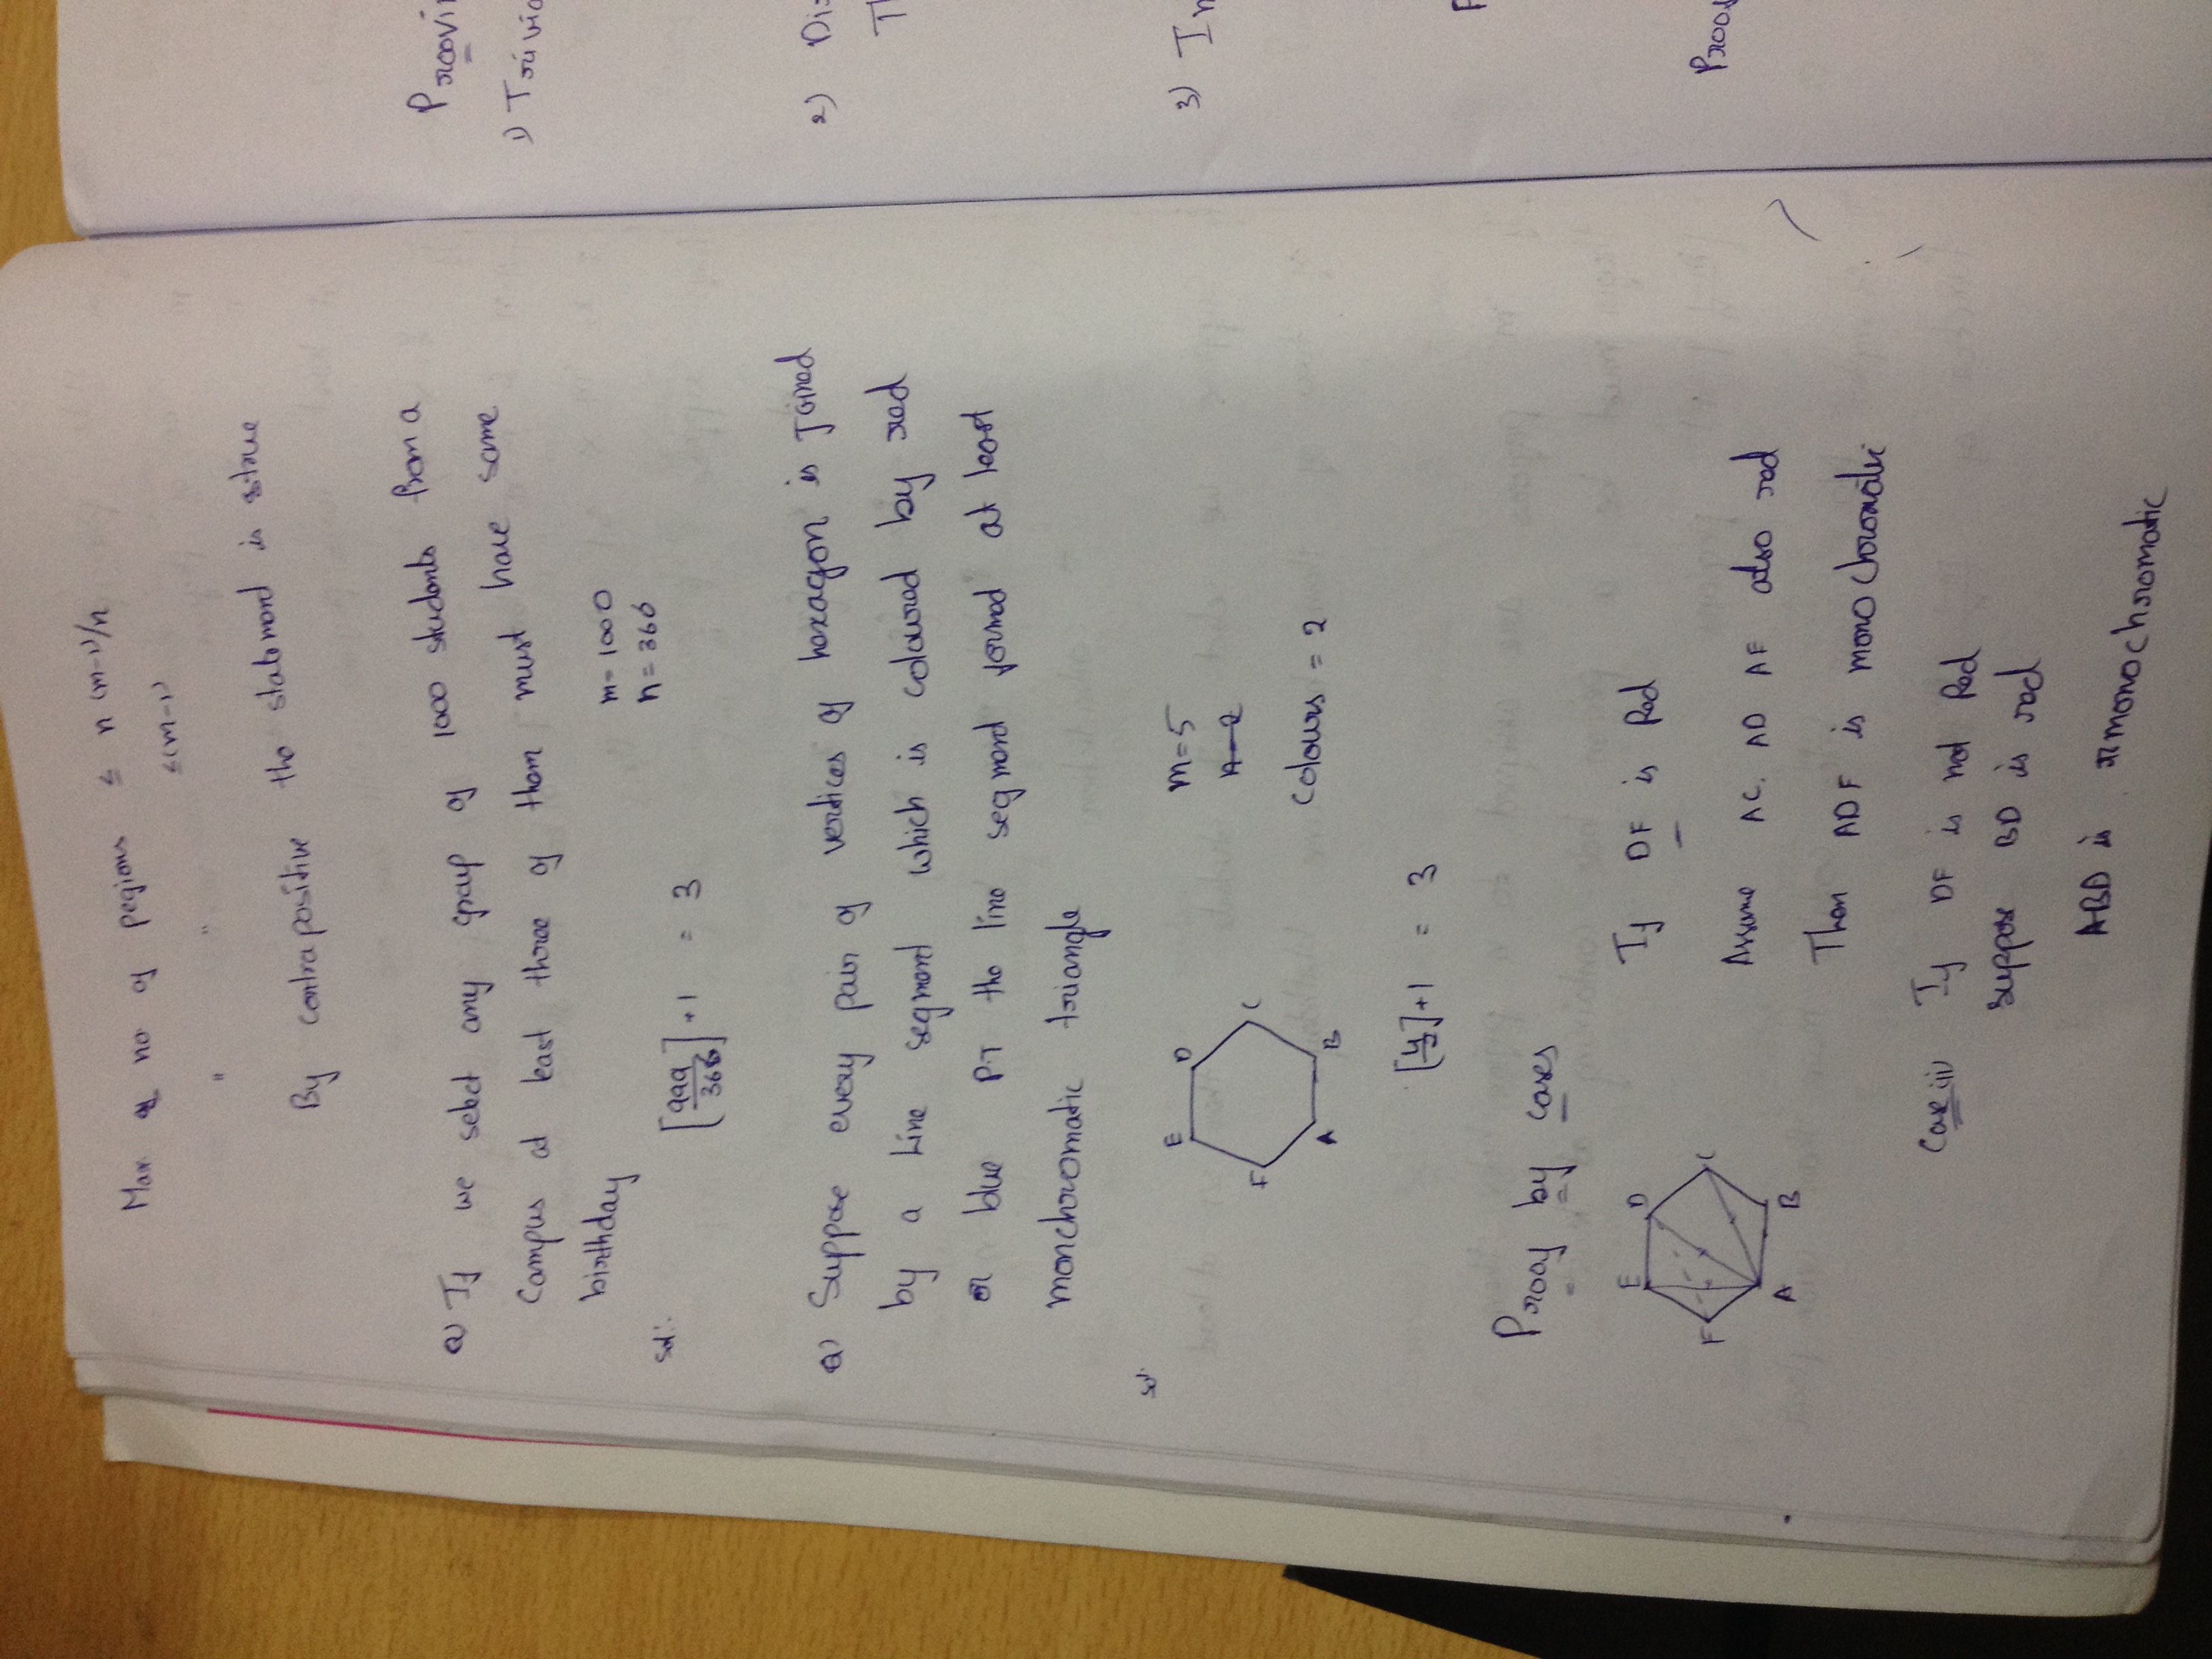 Max no of pegions ≤ n (m-1)/n
" " ≤ (m-1)
By contrapositive the statement is true
Q) If we select any group of 1000 students from a
campus at least three of them must have same
birthday
m = 1000
n = 366
Sol:
[999/366] + 1 = 3
Q) Suppose every pair of vertices of hexagon is Joined
by a Line segment which is coloured by red
or blue P.T the line segment formed at least
monochromatic triangle
Sol:
E D
F C
A B
m = 5
n = 2
Colours = 2
[4/2] + 1 = 3
Proof by cases
E D
F C
A B
If DF is Red
Assume AC, AD AF also red
Then ADF is monochromatic
Case (ii) If DF is not Red
Suppose BD is red
ABD is monochromatic
1) Trivia
2) Di
3) In
Proof